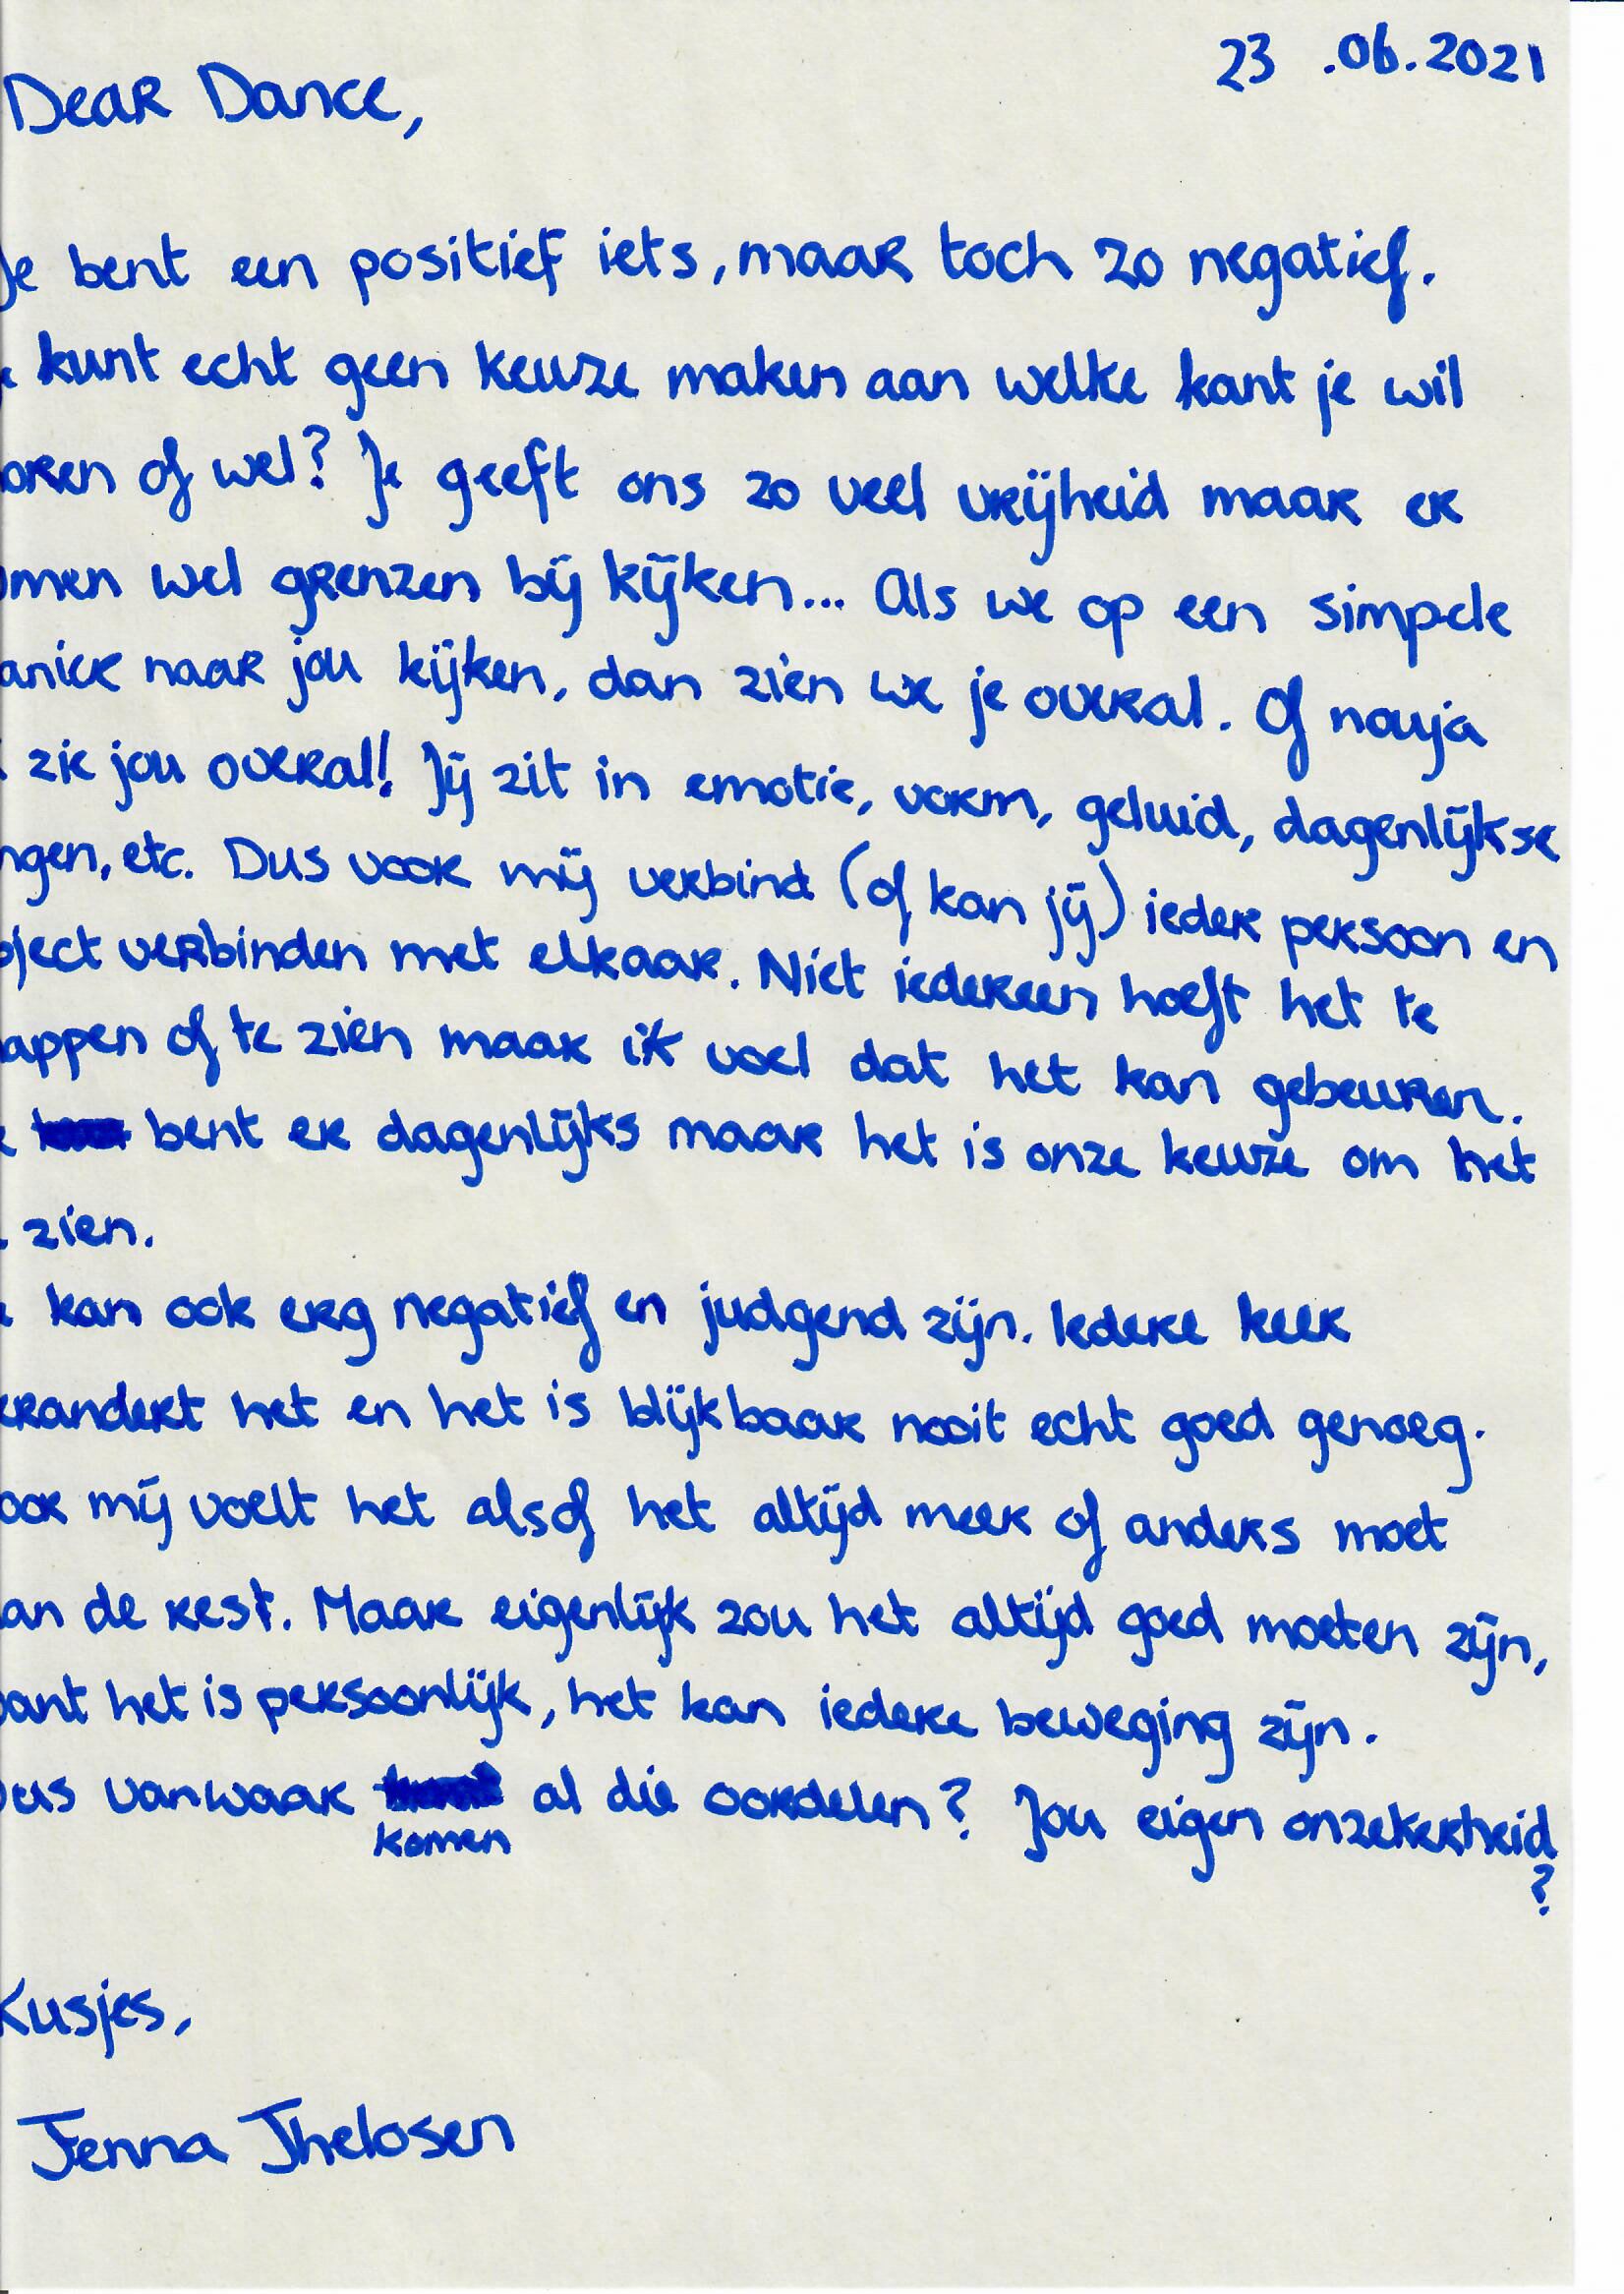 23 .06.2021
Dear Dance,
Je bent een positief iets, maar toch zo negatief.
kunt echt geen keuze maken aan welke kant je wil
oren of wel? Je geeft ons zo veel vrijheid maar er
omen wel grenzen bij kijken... Als we op een simpele
anier naar jou kijken, dan zien we je overal. Of nouja
zie jou overal! Jij zit in emotie, vorm, geluid, dagenlijkse
ngen, etc. Dus voor mij verbind (of kan jij) ieder persoon en
bject verbinden met elkaar. Niet iedereen hoeft het te
appen of te zien maar ik voel dat het kan gebeuren.
bent er dagenlijks maar het is onze keuze om het
zien.
kan ook erg negatief en judgend zijn. Iedere keer
erandert het en het is blijkbaar nooit echt goed genoeg.
oor mij voelt het alsof het altijd meer of anders moet
an de rest. Maar eigenlijk zou het altijd goed moeten zijn,
ant het is persoonlijk, het kan iedere beweging zijn.
Dus vanwaar komen al die oordelen? Jou eigen onzekerheid
?
Kusjes,
Jenna Jhelosen